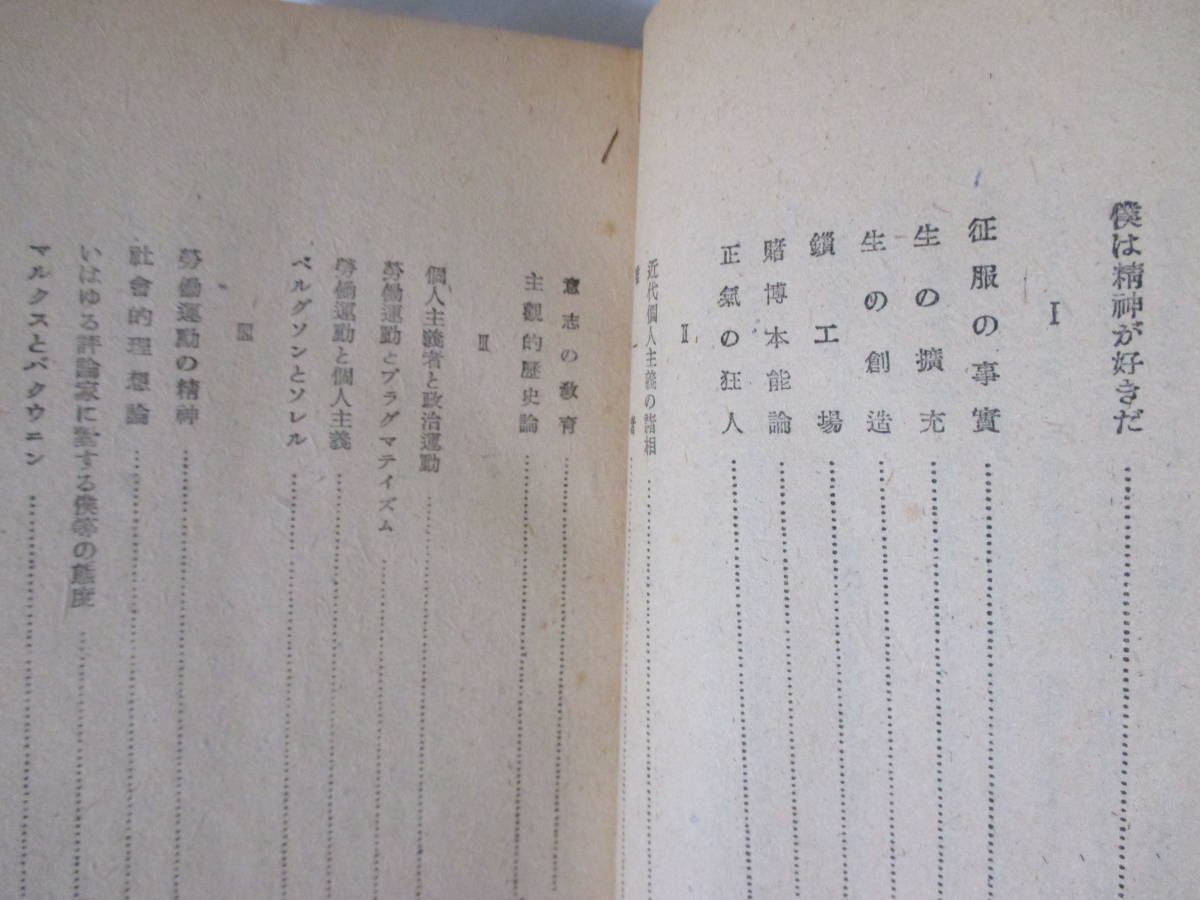 僕は精神が好きだ
I
征服の事實
生の擴充
生の創造
鎖工場
賭博本能論
正氣の狂人
II
近代個人主義の諸相
意志の教育
主觀的歴史論
III
個人主義者と政治運動
勞働運動とプラグマテイズム
勞働運動と個人主義
ベルグソンとソレル
IV
勞働運動の精神
社會的理想論
いはゆる評論家に對する僕等の態度
マルクスとバクウニン